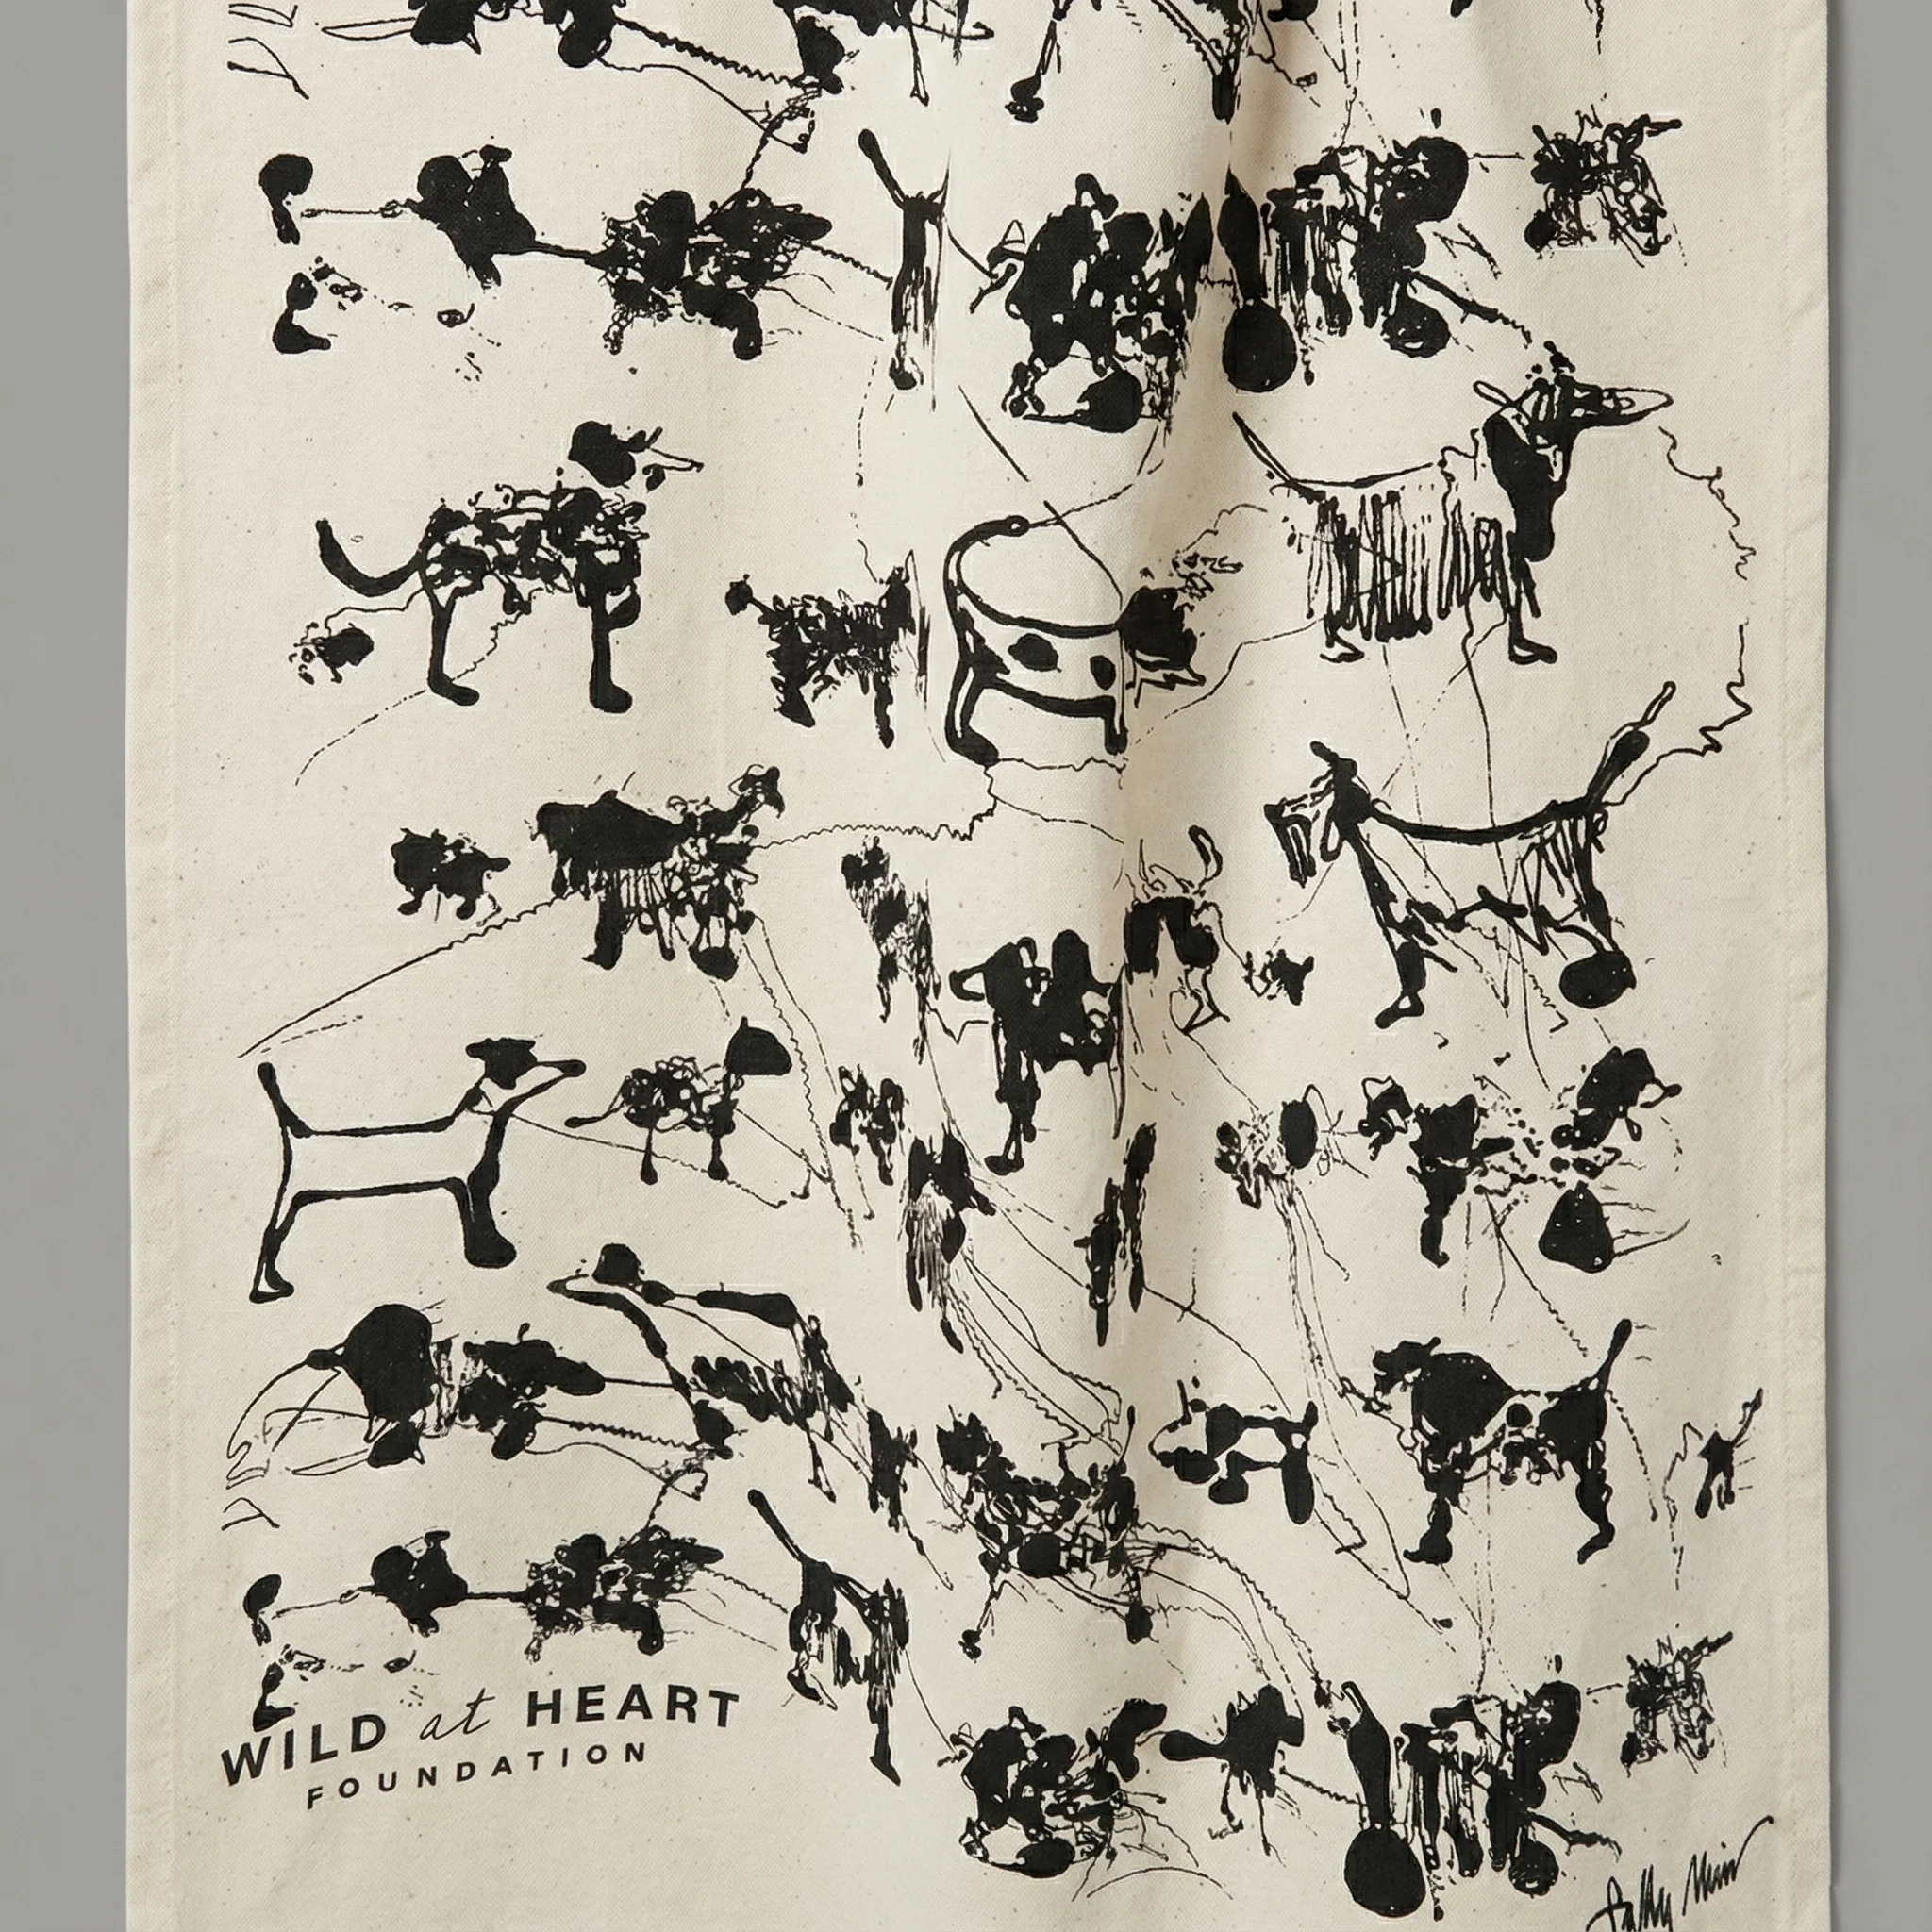 WILD at HEART
FOUNDATION
Sally Muir